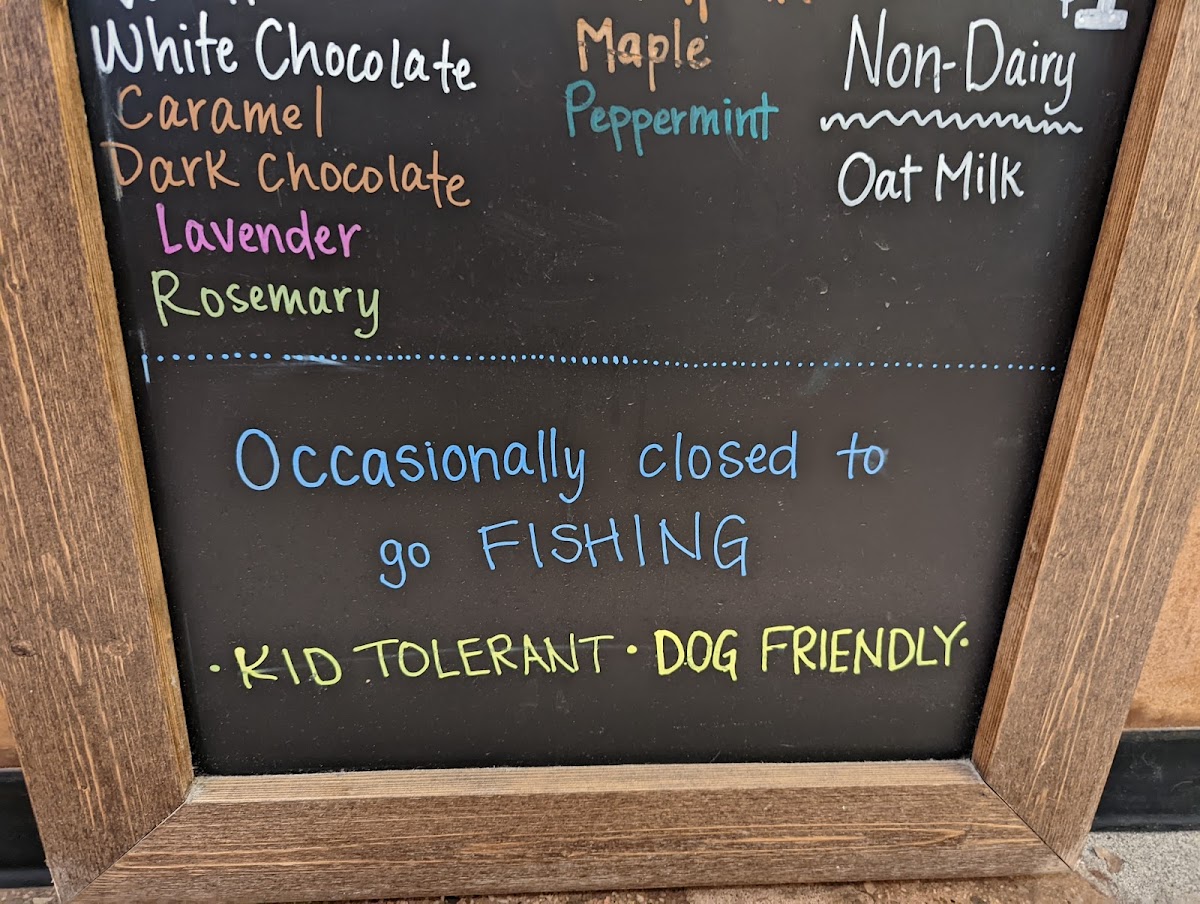 White Chocolate
Caramel
Dark Chocolate
Lavender
Rosemary
Maple
Peppermint
Non-Dairy
Oat Milk
Occasionally closed to
go FISHING
· KID TOLERANT · DOG FRIENDLY·